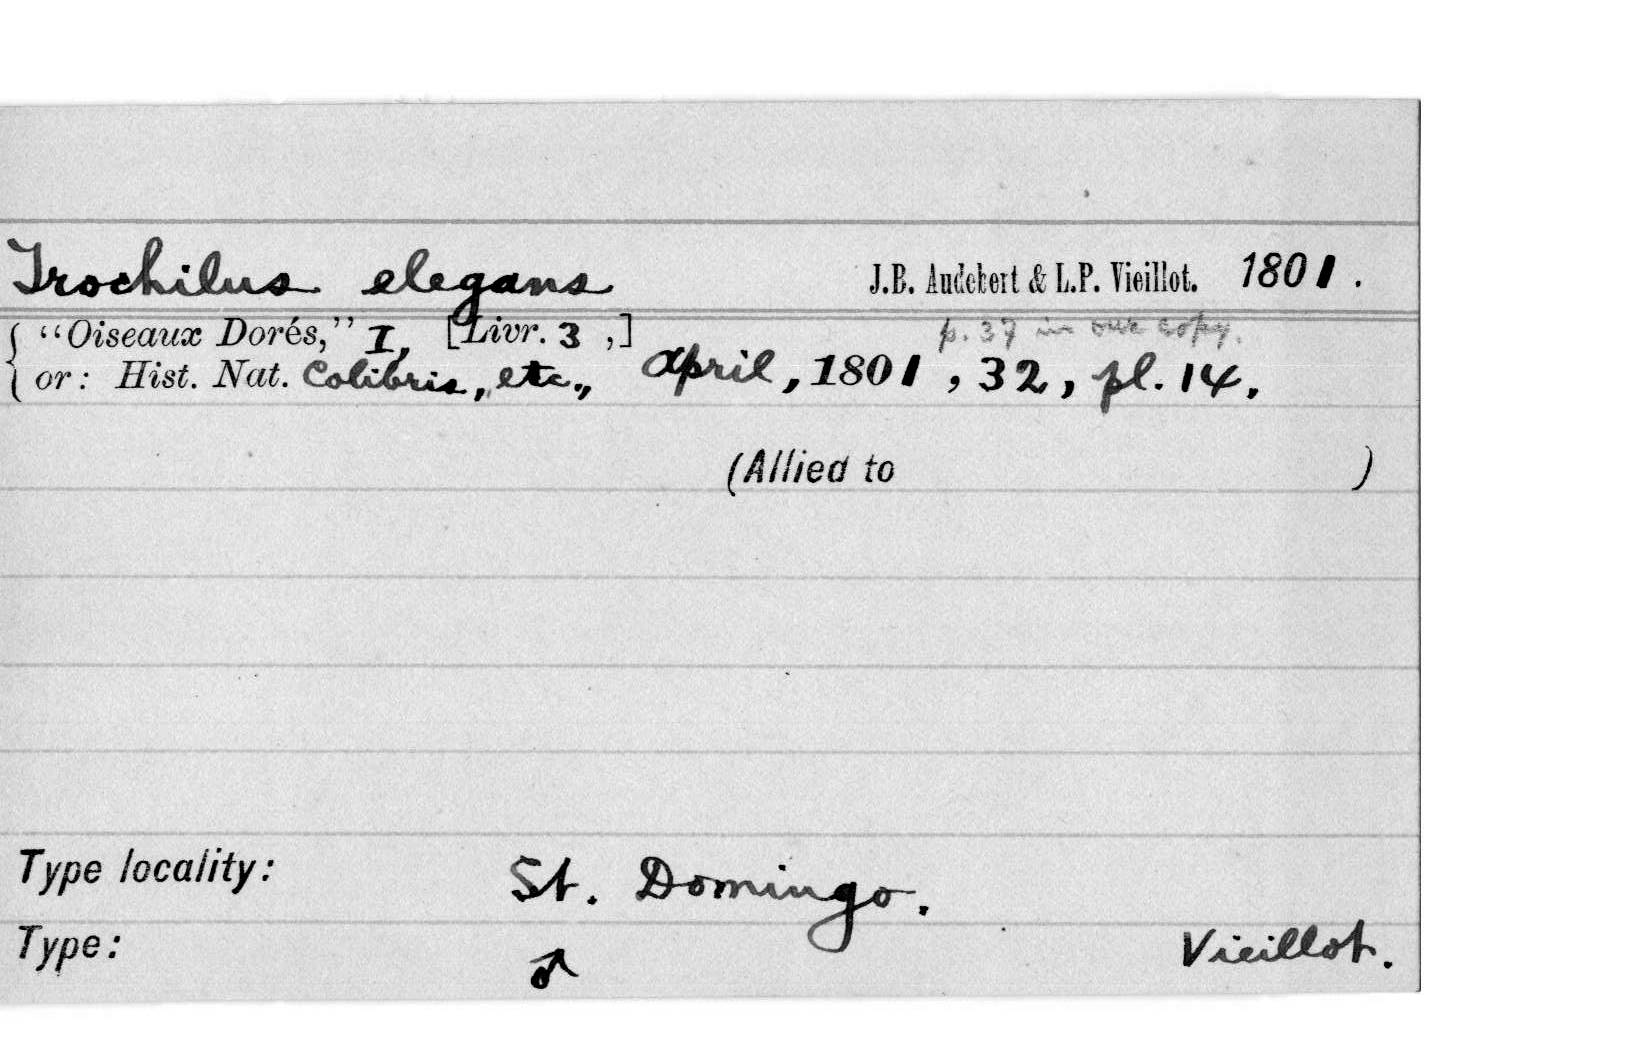 Trochilus elegans J.B. Audebert & L.P. Vieillot. 1801.
"Oiseaux Dorés," I, [Livr. 3 ,] p. 37 in our copy.
or: Hist. Nat. Colibris, etc., April, 1801, 32, pl. 14.
(Allied to )
Type locality: St. Domingo.
Type: ♂ Vieillot.